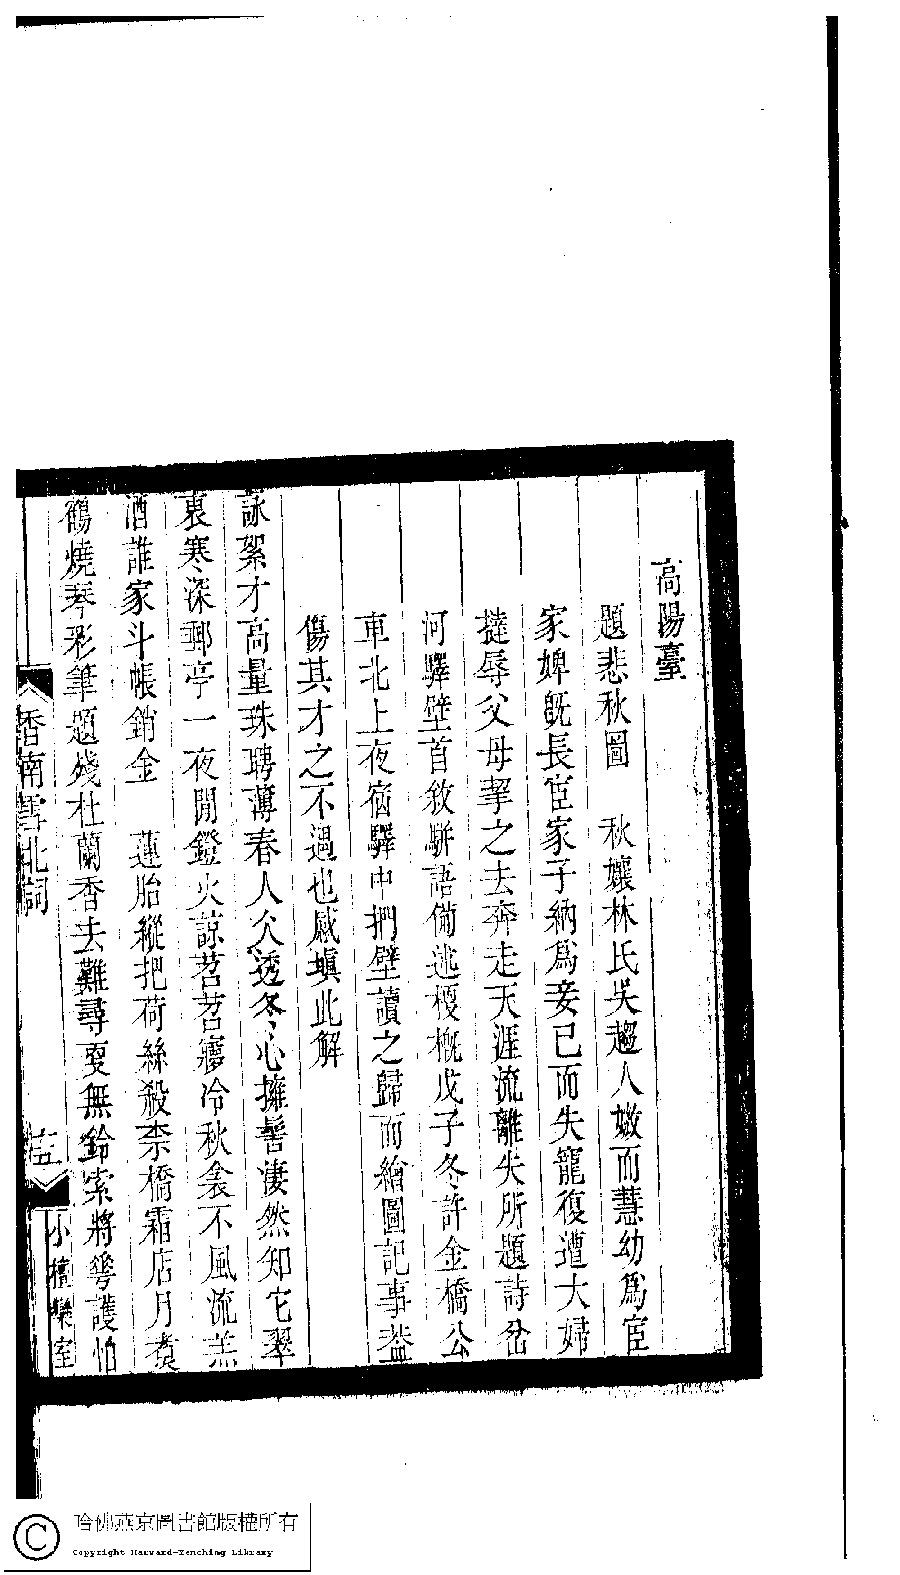 高陽臺
題悲秋圖　秋孃林氏吳趨人媺而慧幼爲宦
家婢旣長宦家子納爲妾已而失寵復遭大婦
撻辱父母挈之去奔走天涯流離失所題詩岔
河驛壁首敘駢語備述梗槪戊子冬許金橋公
車北上夜宿驛中捫壁讀之歸而繪圖記事葢
傷其才之不遇也感塡此解
詠絮才高量珠聘薄春人父透冬心擁髻淒然知它翠
裏寒深郵亭一夜閒鐙火諒苕苕㝱冷秋衾不風流羔
酒誰家斗帳銷金　蓮胎縱把荷絲殺柰橋霜店月煑
鶴燒琴彩筆題殘杜蘭香去難尋耎無鈴索將蕚護怕
香南雪北詞
十五
小檀欒室
哈佛燕京圖書館版權所有
Copyright Harvard-Yenching Library